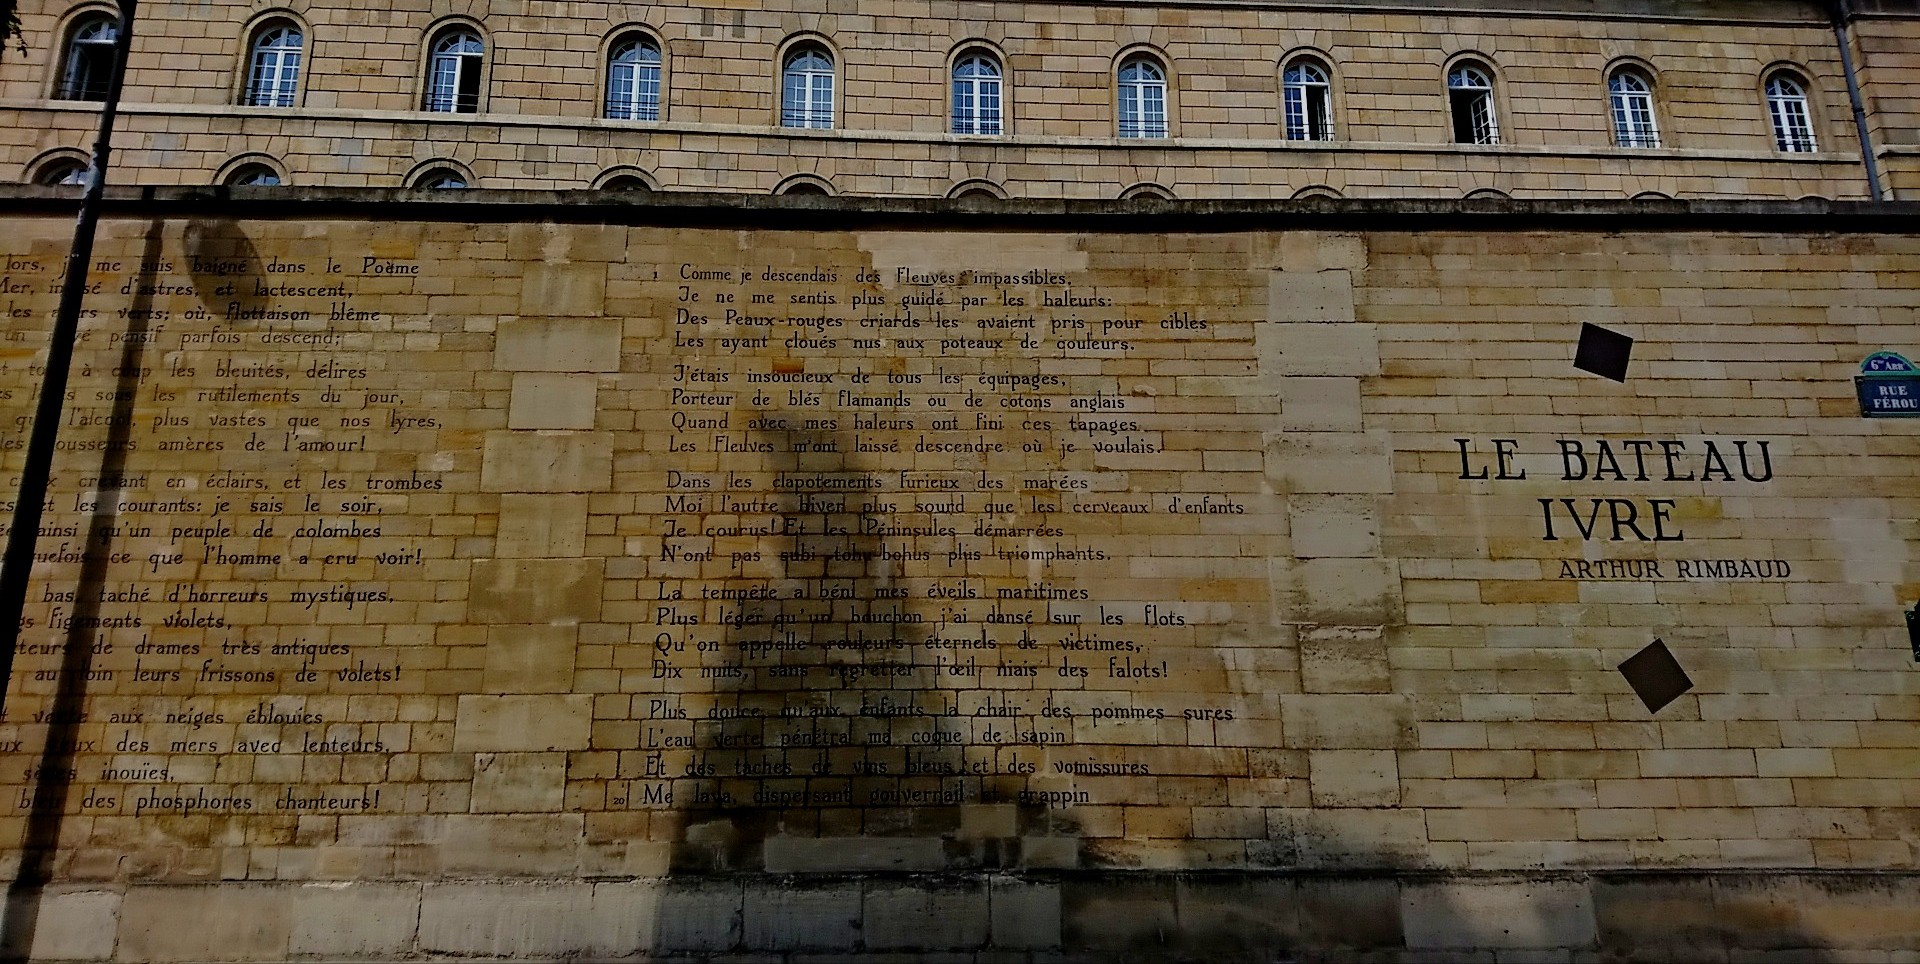 lors, je me suis baigné dans le Poème
Mer, infusé d'astres, et lactescent,
les azurs verts; où, flottaison blême
un noyé pensif parfois descend;
à coup les bleuités, délires
sous les rutilements du jour,
l'alcool, plus vastes que nos lyres,
rousseurs amères de l'amour!
crevant en éclairs, et les trombes
et les courants: je sais le soir,
ainsi qu'un peuple de colombes
ce que l'homme a cru voir!
bas, taché d'horreurs mystiques,
figements violets,
de drames très antiques
au loin leurs frissons de volets!
aux neiges éblouies
des mers avec lenteurs,
inouïes,
des phosphores chanteurs!
1 Comme je descendais des Fleuves impassibles,
Je ne me sentis plus guidé par les haleurs:
Des Peaux-rouges criards les avaient pris pour cibles
Les ayant cloués nus aux poteaux de couleurs.
J'étais insoucieux de tous les équipages,
Porteur de blés flamands ou de cotons anglais
Quand avec mes haleurs ont fini ces tapages
Les Fleuves m'ont laissé descendre où je voulais.
Dans les clapotements furieux des marées
Moi l'autre hiver plus sourd que les cerveaux d'enfants
Je courus! Et les Péninsules démarrées
N'ont pas subi tohu-bohus plus triomphants.
La tempête a béni mes éveils maritimes
Plus léger qu'un bouchon j'ai dansé sur les flots
Qu'on appelle rouleurs éternels de victimes,
Dix nuits, sans regretter l'œil niais des falots!
Plus douce qu'aux enfants la chair des pommes sures
L'eau verte pénétra ma coque de sapin
Et des taches de vins bleus et des vomissures
20 Me lava, dispersant gouvernail et grappin
LE BATEAU
IVRE
ARTHUR RIMBAUD
6me Arrt
RUE
FÉROU